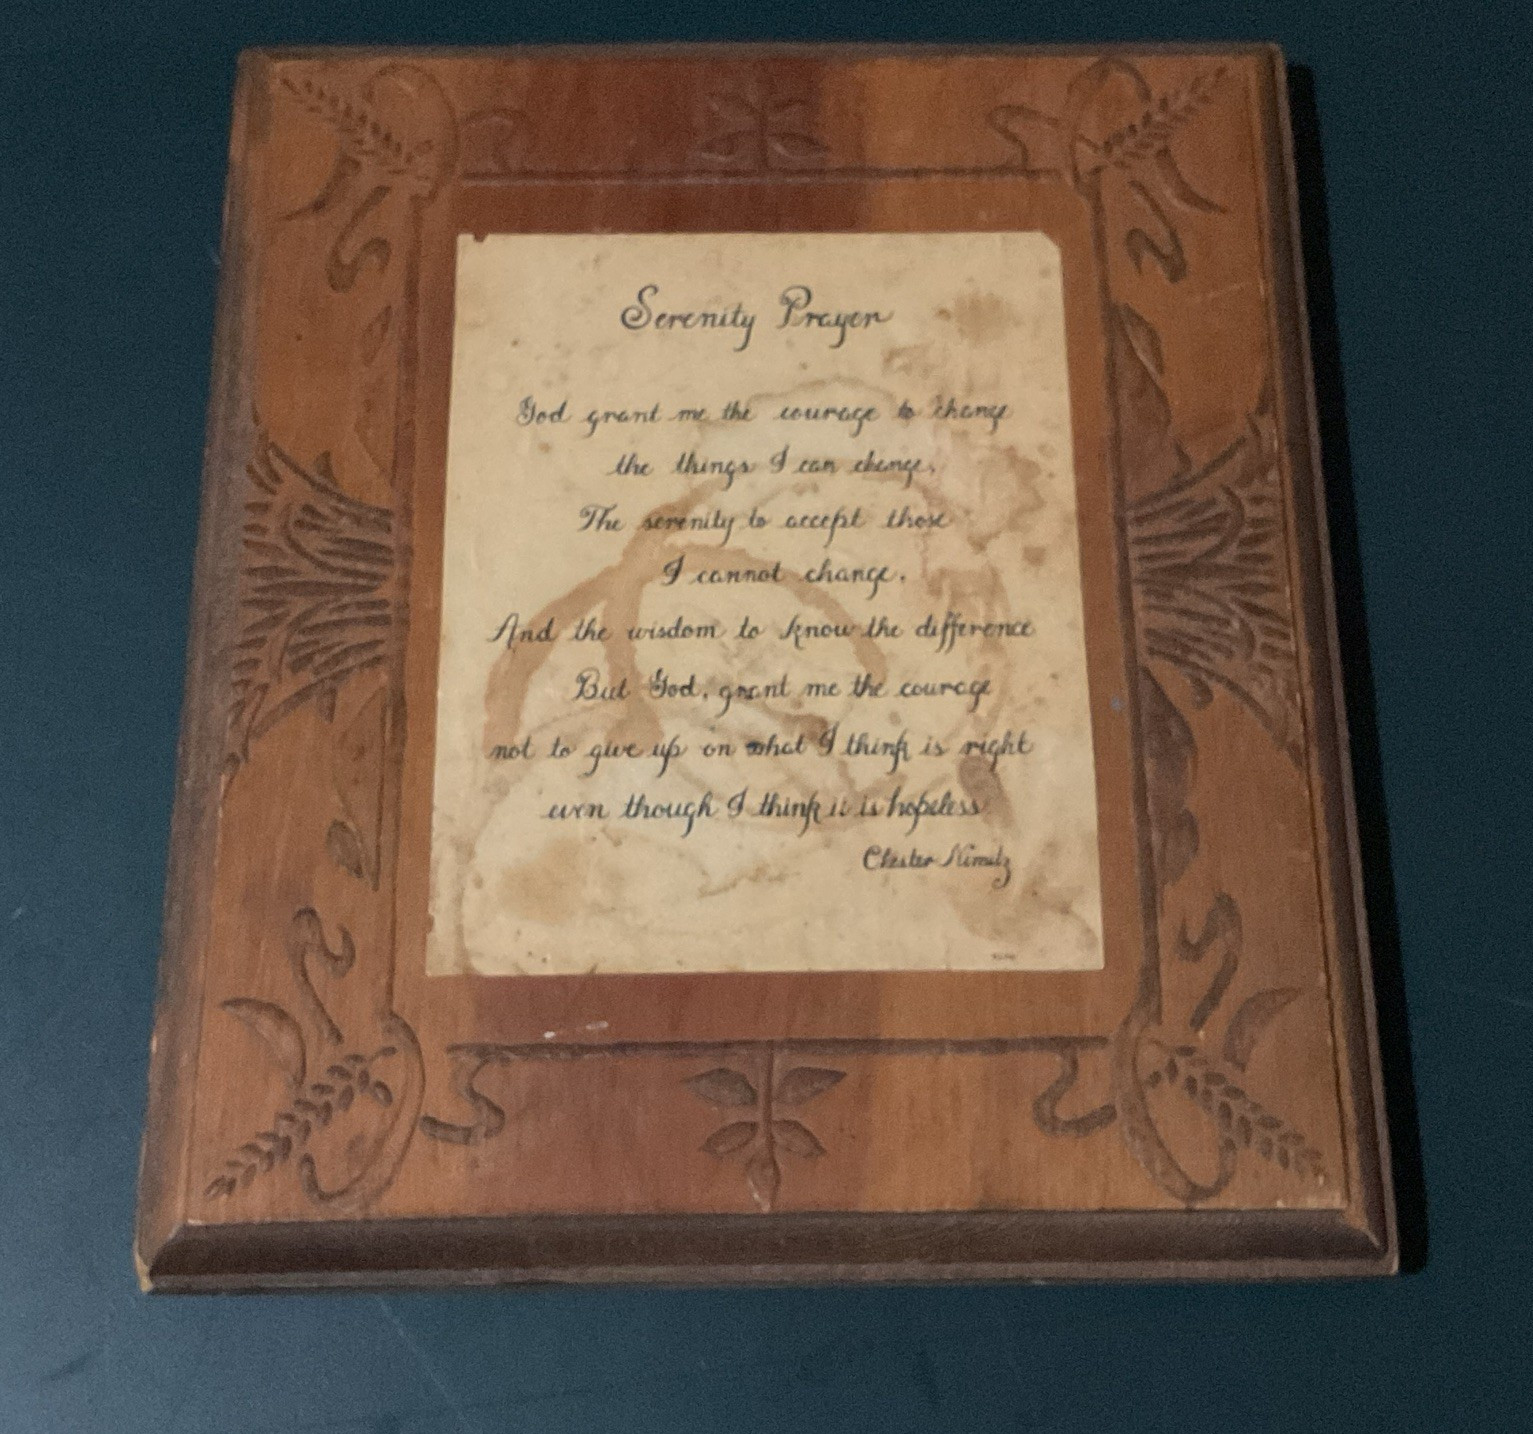 Serenity Prayer
God grant me the courage to change
the things I can change,
The serenity to accept those
I cannot change.
And the wisdom to know the difference
But God, grant me the courage
not to give up on what I think is right
even though I think it is hopeless
Chester Nimitz